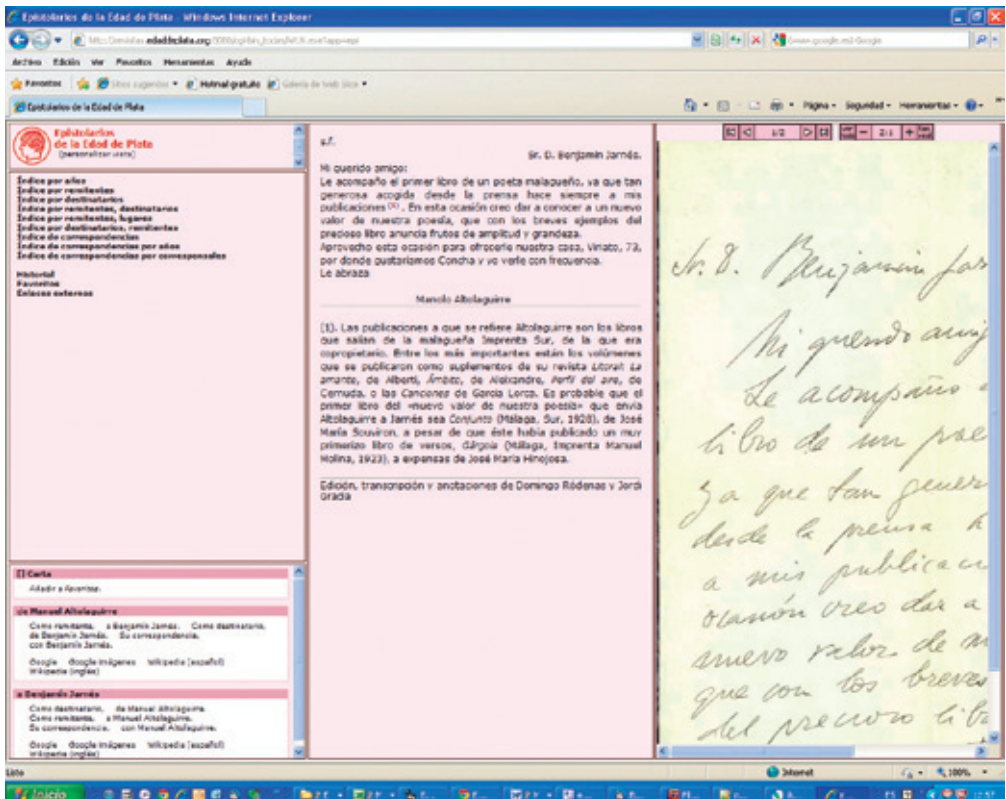 Epistolarios de la Edad de Plata - Windows Internet Explorer
Archivo Edición Ver Favoritos Herramientas Ayuda
Favoritos Sitios sugeridos Hotmail gratuito Galería de Web Slice
Epistolarios de la Edad de Plata
Página Seguridad Herramientas
Epistolarios
de la Edad de Plata
(personalizar vista)
Índice por años
Índice por remitentes
Índice por destinatarios
Índice por remitentes, destinatarios
Índice por remitentes, lugares
Índice por destinatarios, remitentes
Índice de correspondencias
Índice de correspondencias por años
Índice de correspondencias por corresponsales
Historial
Favoritos
Enlaces externos
[] Carta
Añadir a favoritos.
de Manuel Altolaguirre
Como remitente, a Benjamín Jarnés. Como destinatario,
de Benjamín Jarnés. Su correspondencia,
con Benjamín Jarnés.
Google Google Imágenes Wikipedia (español)
Wikipedia (inglés)
a Benjamín Jarnés
Como destinatario, de Manuel Altolaguirre.
Como remitente, a Manuel Altolaguirre.
Su correspondencia, con Manuel Altolaguirre.
Google Google Imágenes Wikipedia (español)
Wikipedia (inglés)
s.f.
Sr. D. Benjamín Jarnés.
Mi querido amigo:
Le acompaño el primer libro de un poeta malagueño, ya que tan
generosa acogida desde la prensa hace siempre a mis
publicaciones [1]. En esta ocasión creo dar a conocer a un nuevo
valor de nuestra poesía, que con los breves ejemplos del
precioso libro anuncia frutos de amplitud y grandeza.
Aprovecho esta ocasión para ofrecerle nuestra casa, Viriato, 73,
por donde gustaríamos Concha y yo verle con frecuencia.
Le abraza
Manolo Altolaguirre
[1]. Las publicaciones a que se refiere Altolaguirre son los libros
que salían de la malagueña Imprenta Sur, de la que era
copropietario. Entre los más importantes están los volúmenes
que se publicaron como suplementos de su revista Litoral: La
amante, de Alberti, Ámbito, de Aleixandre, Perfil del aire, de
Cernuda, o las Canciones de García Lorca. Es probable que el
primer libro del «nuevo valor de nuestra poesía» que envía
Altolaguirre a Jarnés sea Conjunto (Málaga, Sur, 1928), de José
María Souviron, a pesar de que éste había publicado un muy
primerizo libro de versos, Gárgola (Málaga, Imprenta Manuel
Molina, 1923), a expensas de José María Hinojosa.
Edición, transcripción y anotaciones de Domingo Ródenas y Jordi
Gracia
1/2 2:1
Sr. D. Benjamín Jar
Mi querido amig
Le acompaño
libro de un poe
ya que tan gener
desde la prensa h
a mis publicaci
ocasión creo dar a
nuevo valor de n
que con los breves
del precioso lib
Listo
Internet
100%
Inicio
ES
12:57